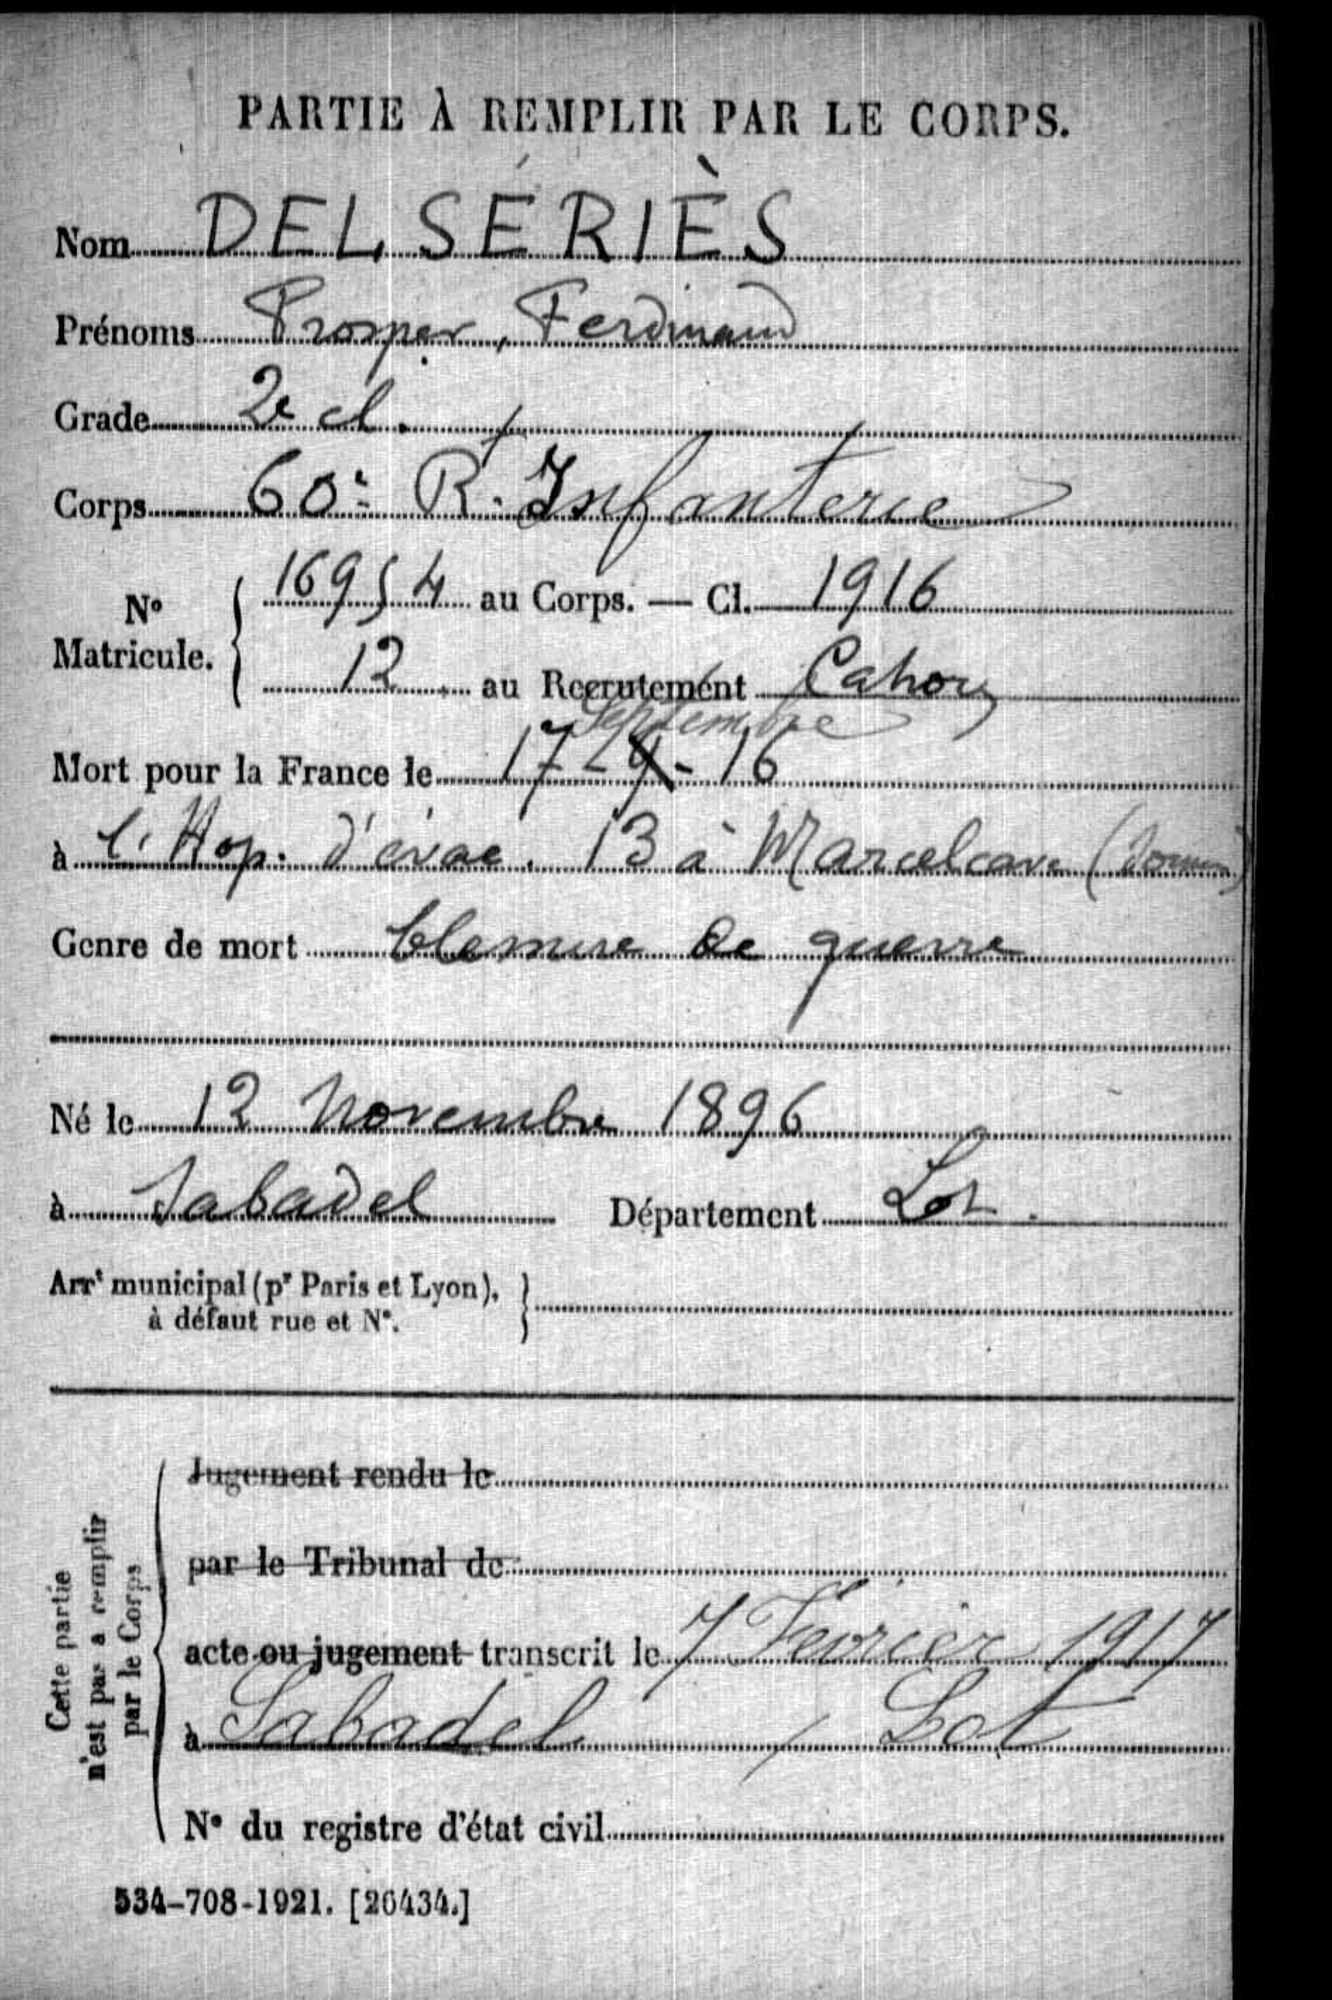 PARTIE À REMPLIR PAR LE CORPS.
Nom DELSÉRIÈS
Prénoms Prosper, Ferdinand
Grade 2e cl.
Corps 60e Rt. Infanterie
No Matricule. 16954 au Corps. — Cl. 1916
12 au Recrutement Cahors
Septembre
Mort pour la France le 17-9-16
à l'Hop. d'évac. 13 à Marcelcave (Somme)
Genre de mort blessure de guerre
Né le 12 Novembre 1896
à Sabadel Département Lot.
Arrt municipal (pr Paris et Lyon),
à défaut rue et No.
Cette partie
n'est pas à remplir
par le Corps
Jugement rendu le
par le Tribunal de
acte ou jugement transcrit le 7 Février 1917
à Sabadel, Lot
No du registre d'état civil
534-708-1921. [26434.]